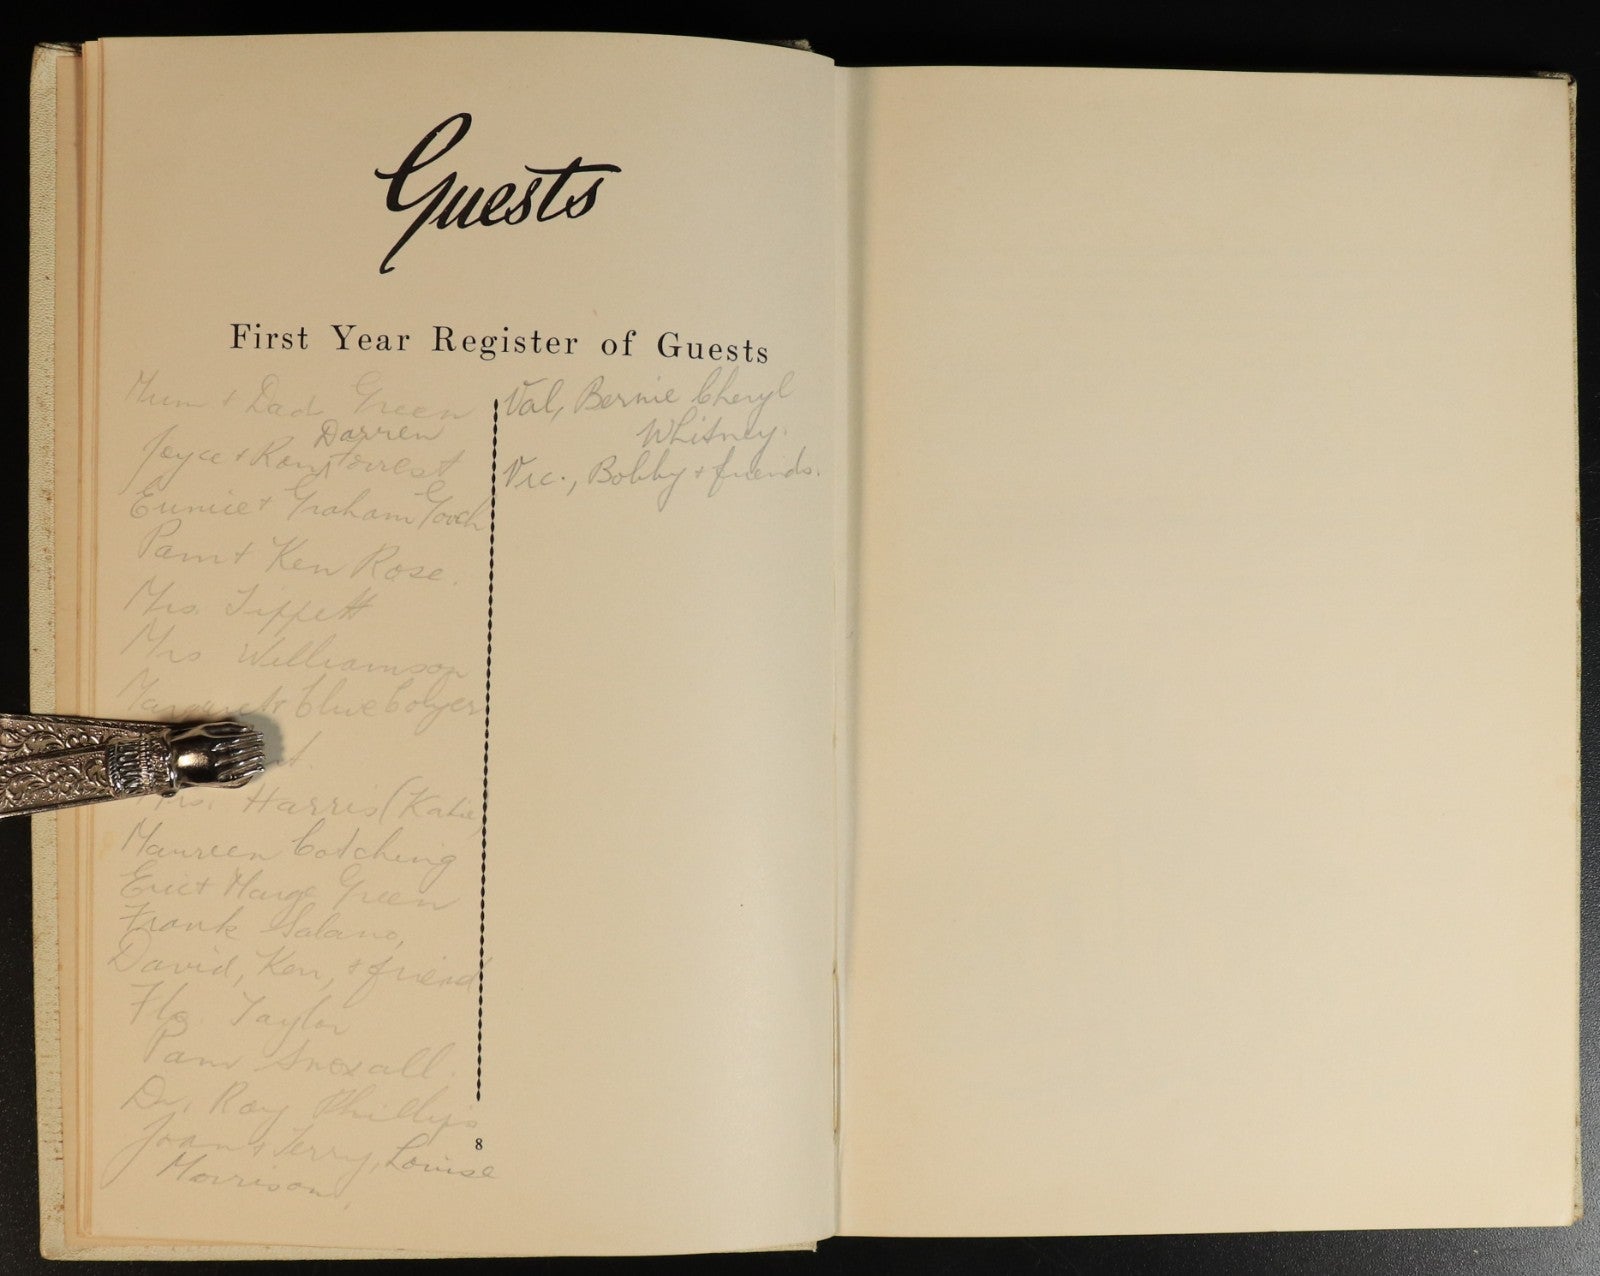 Guests
First Year Register of Guests
Mum + Dad Green
Darren
Joyce + Ron Forrest
Eunice + Graham Gooch
Pam + Ken Rose.
Mrs. Tippett
Mrs Williamson
Margaret + Clive Colyer
Mrs. Harris (Katie)
Maureen Cotching
Eric + Marge Green
Frank Salano,
David, Ken, + friend
Flo. Taylor
Pam Snoxall.
Dr. Roy Phillips
Joan + Terry, Louise
Morrison,
Val, Bernie Cheryl
Whitney.
Vic., Bobby + friends.
8